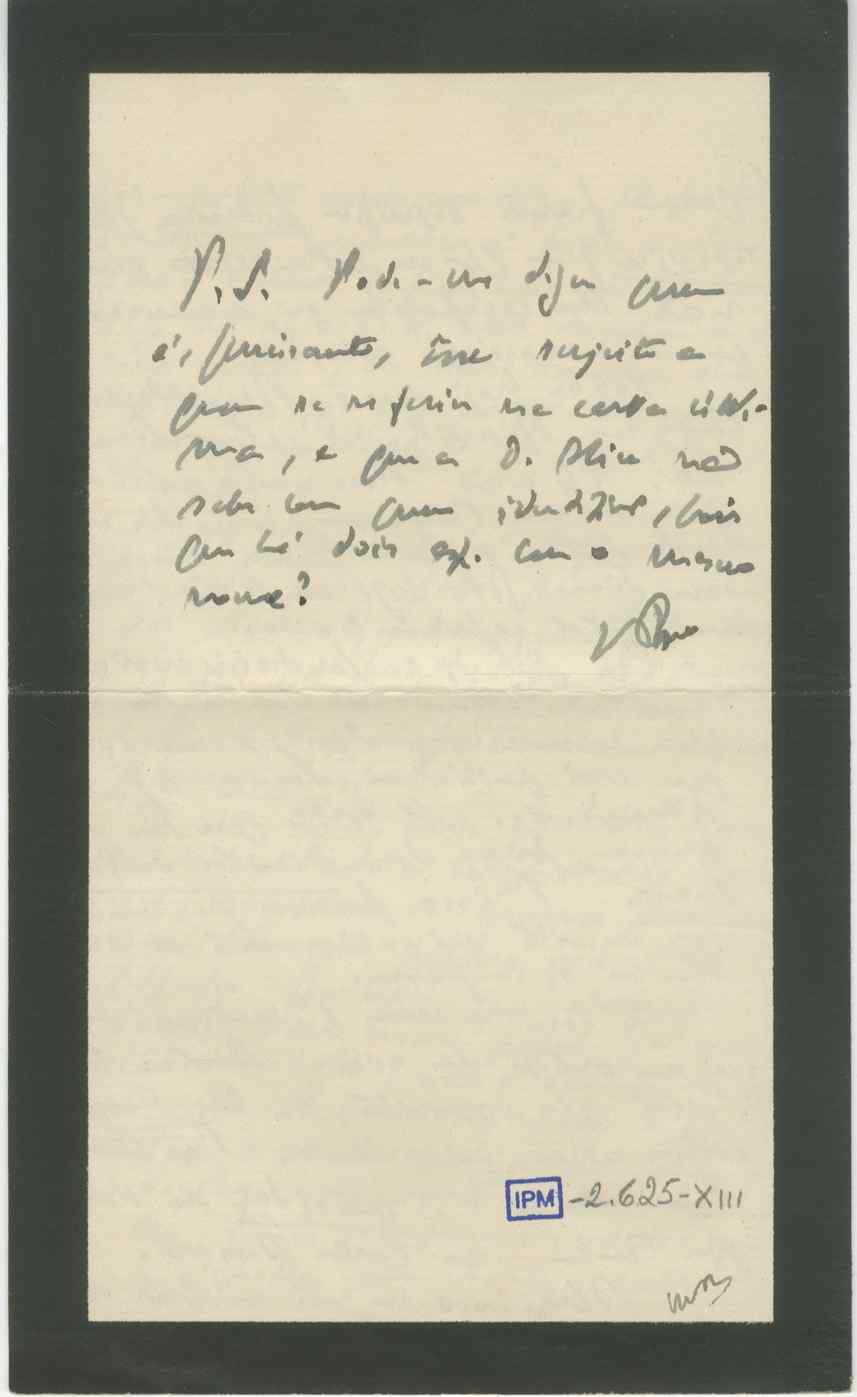 P.S. Pode-me dizer quem
é, precisamente, êsse sujeito a
quem se referia na carta últi-
ma, e que a D. Alice não
sabe com quem identifique, pois
que há dois esp. com o mesmo
nome?
IPM -2.625-XIII